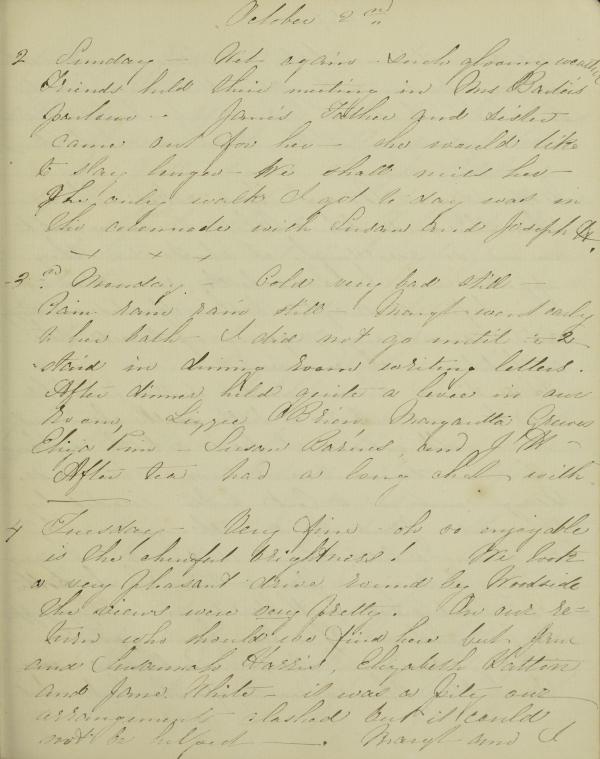 October 2nd
2 Sunday - Wet again - such gloomy weather
Friends held their meeting in Mrs
parlour - Father and sister
came out for her - she would like
to stay longer - We shall miss her
The only walk I got to day was in
the colonnade with Susan and Joseph
3rd Monday. Cold very bad still -
Rain rain rain still - Margt went early
to her bath - I did not go until 2
staid in dining room writing letters.
After dinner held quite a levee in our
room, Lizzie O'Brien, Greeves
Eliza Pim - Susan and J
After tea had a long chat with
4 Tuesday - Very fine - oh so enjoyable
is the cheerful brightness! We took
a very pleasant drive round by Woodside
the views were very pretty. On our re=
turn who should we find here but
and Susannah Harris, Elizabeth
and Jane White - it was a pity our
arrangements clashed but it could
not be helped - . Margt and I